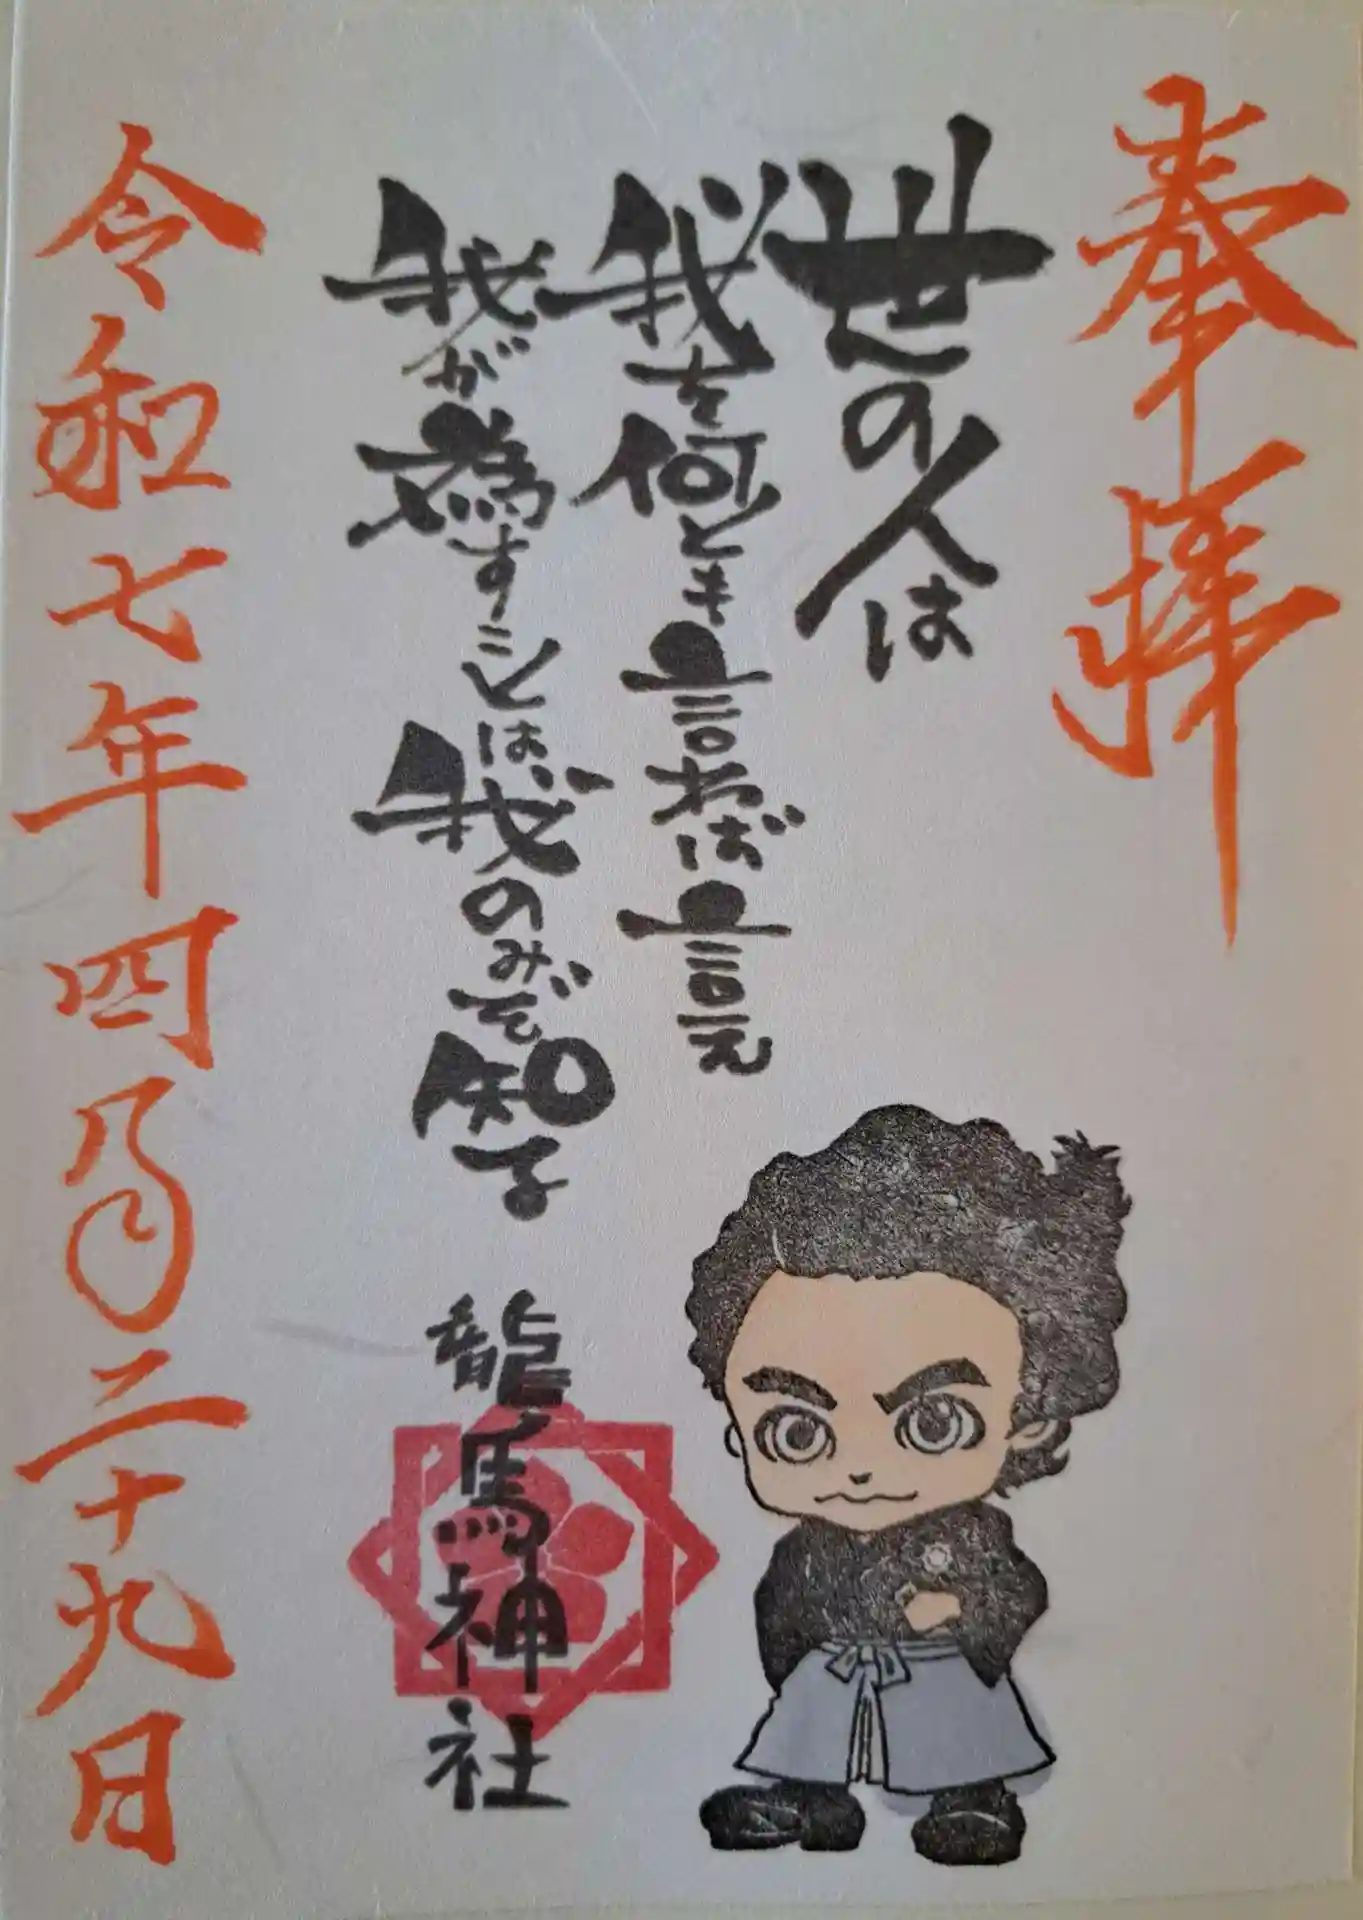 奉拝
世の人は
我を何とも言わば言え
我が為すことは、我のみぞ知る
龍馬神社
令和七年四月二十九日